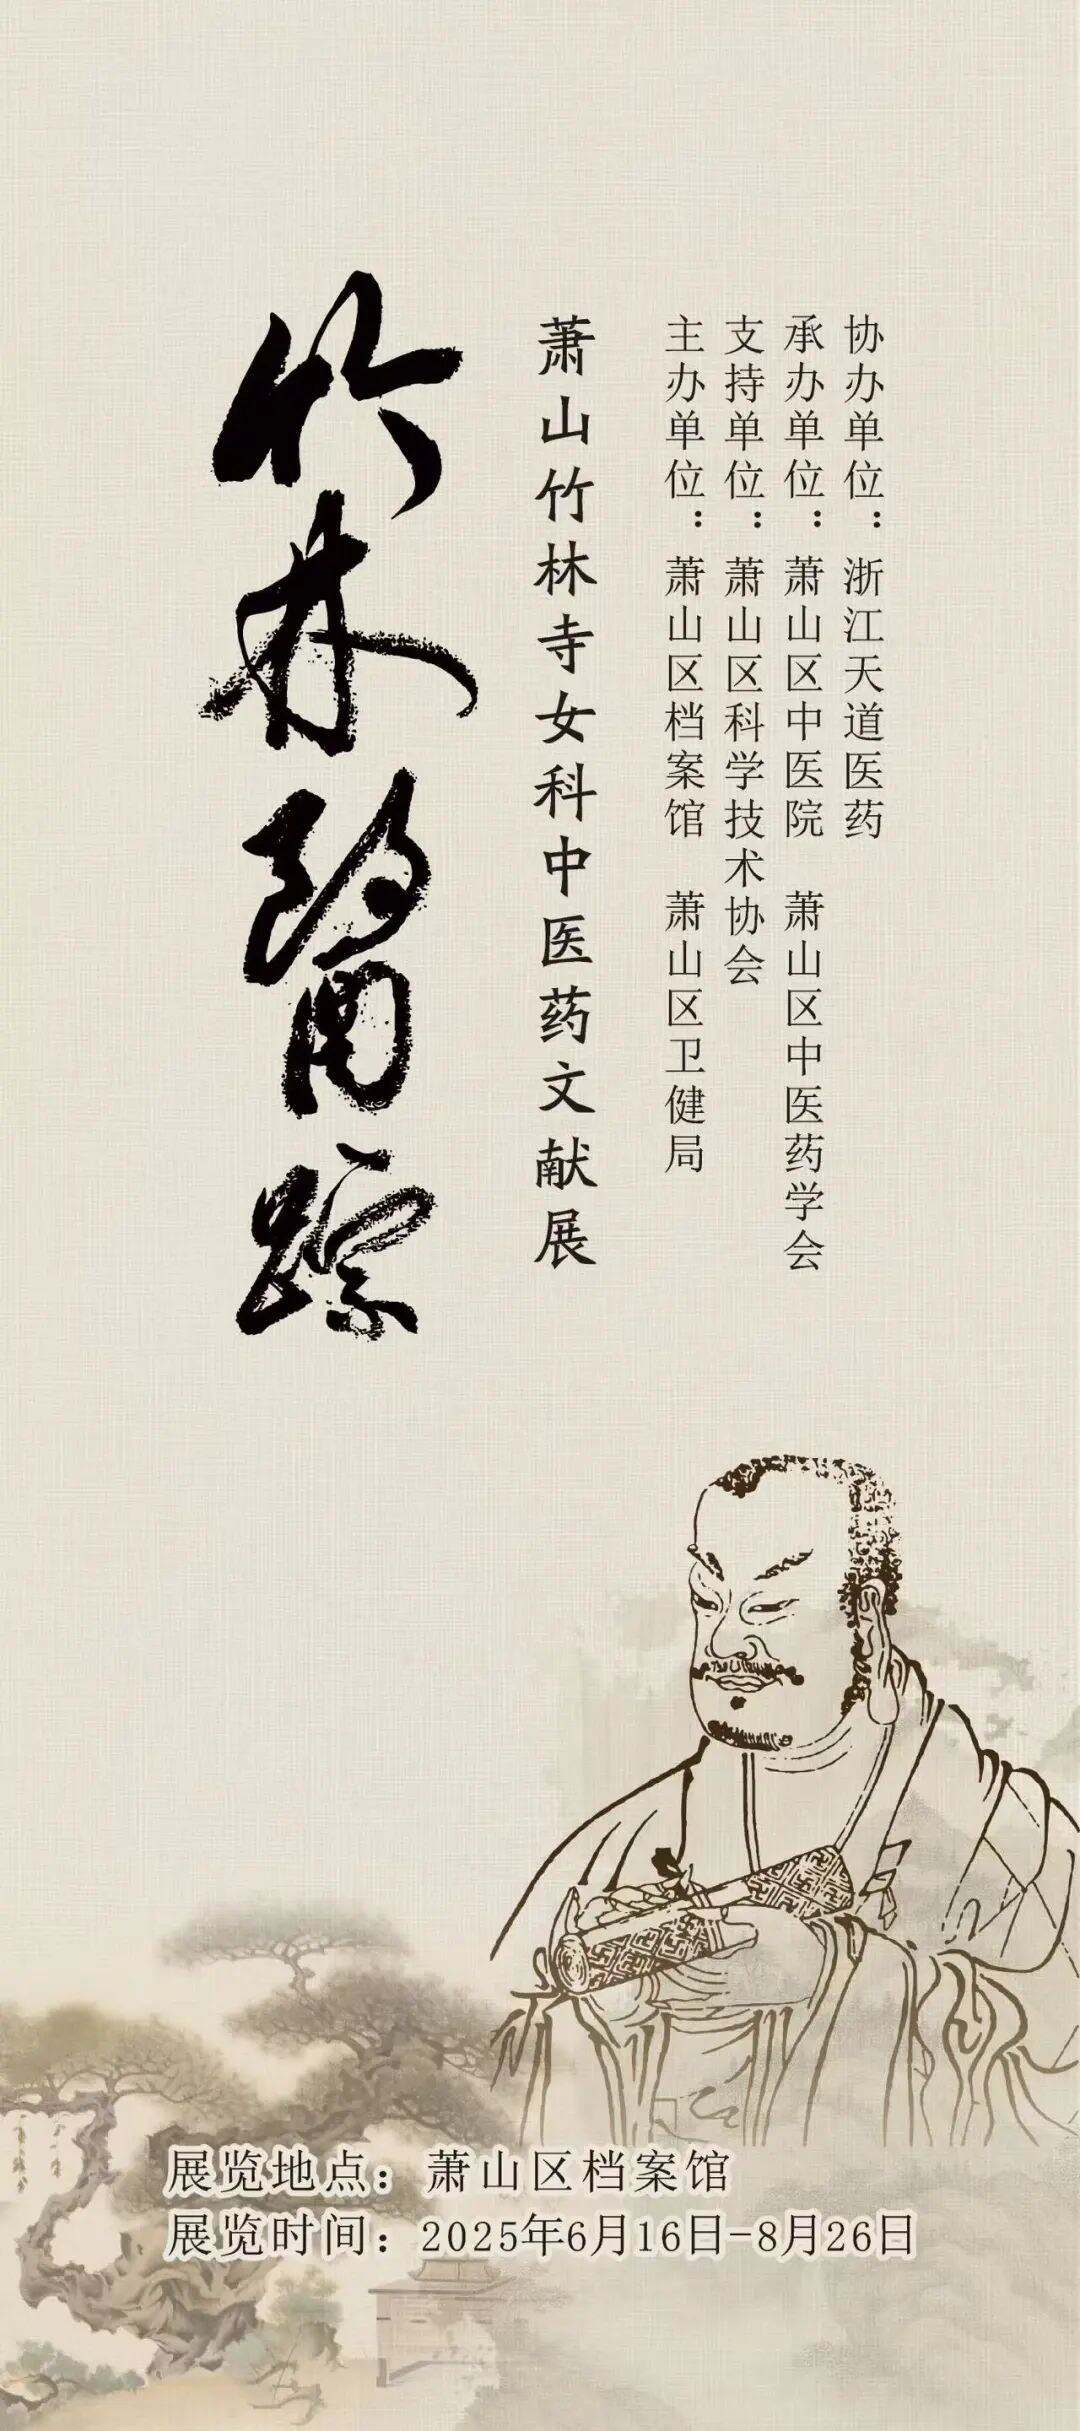 竹林醫踪
萧山竹林寺女科中医药文献展
主办单位：萧山区档案馆 萧山区卫健局
支持单位：萧山区科学技术协会
承办单位：萧山区中医院 萧山区中医药学会
协办单位：浙江天道医药
展览地点：萧山区档案馆
展览时间：2025年6月16日-8月26日